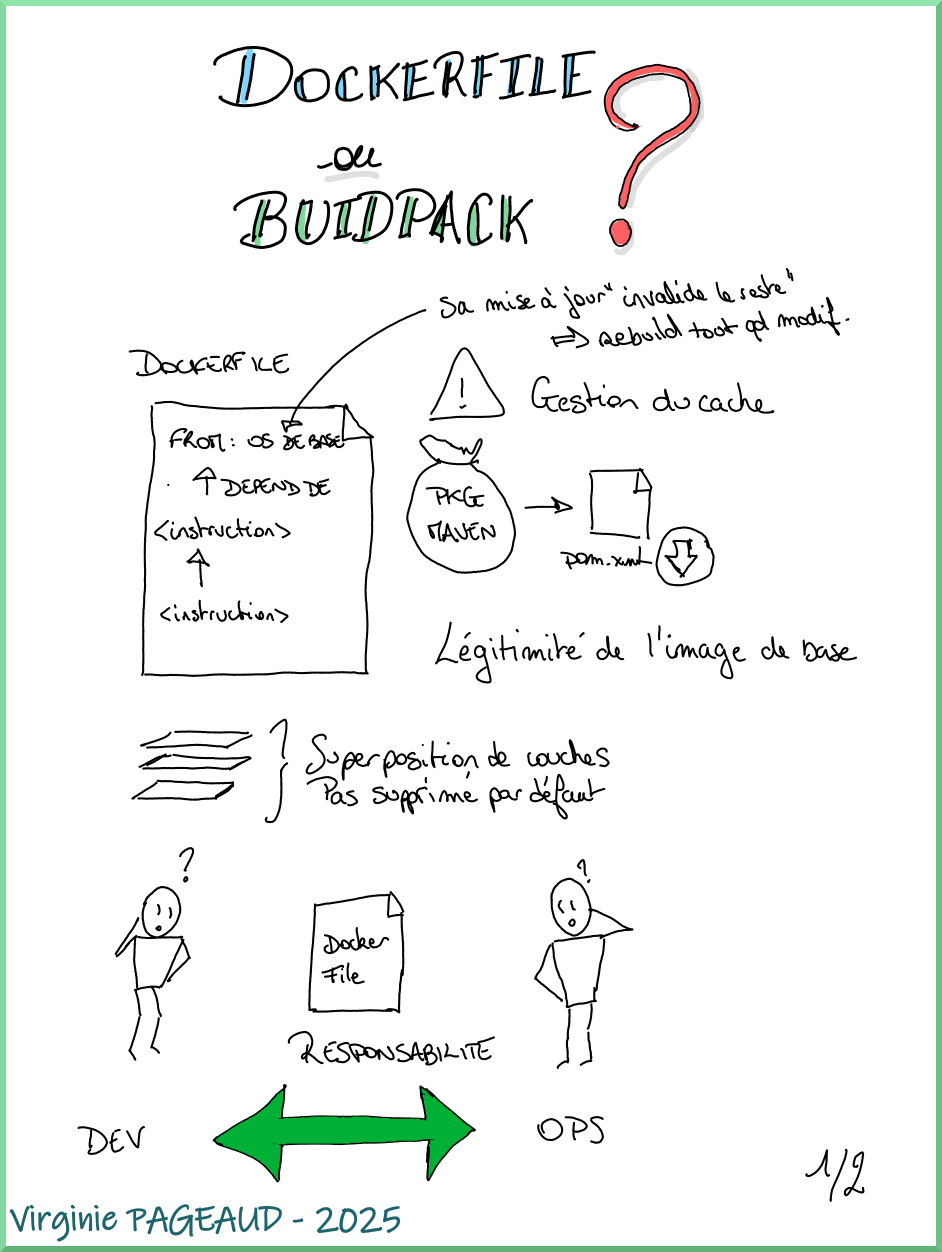 DOCKERFILE
ou
BUIDPACK
?
Sa mise à jour "invalide le reste"
=> rebuild tout qd modif.
DOCKERFILE
! Gestion du cache
FROM : OS DE BASE
DEPEND DE
<instruction>
<instruction>
PKG
MAVEN
pom.xml
Légitimité de l'image de base
Superposition de couches
Pas supprimé par défaut
?
?
Docker
File
RESPONSABILITE
DEV
OPS
1/2
Virginie PAGEAUD - 2025